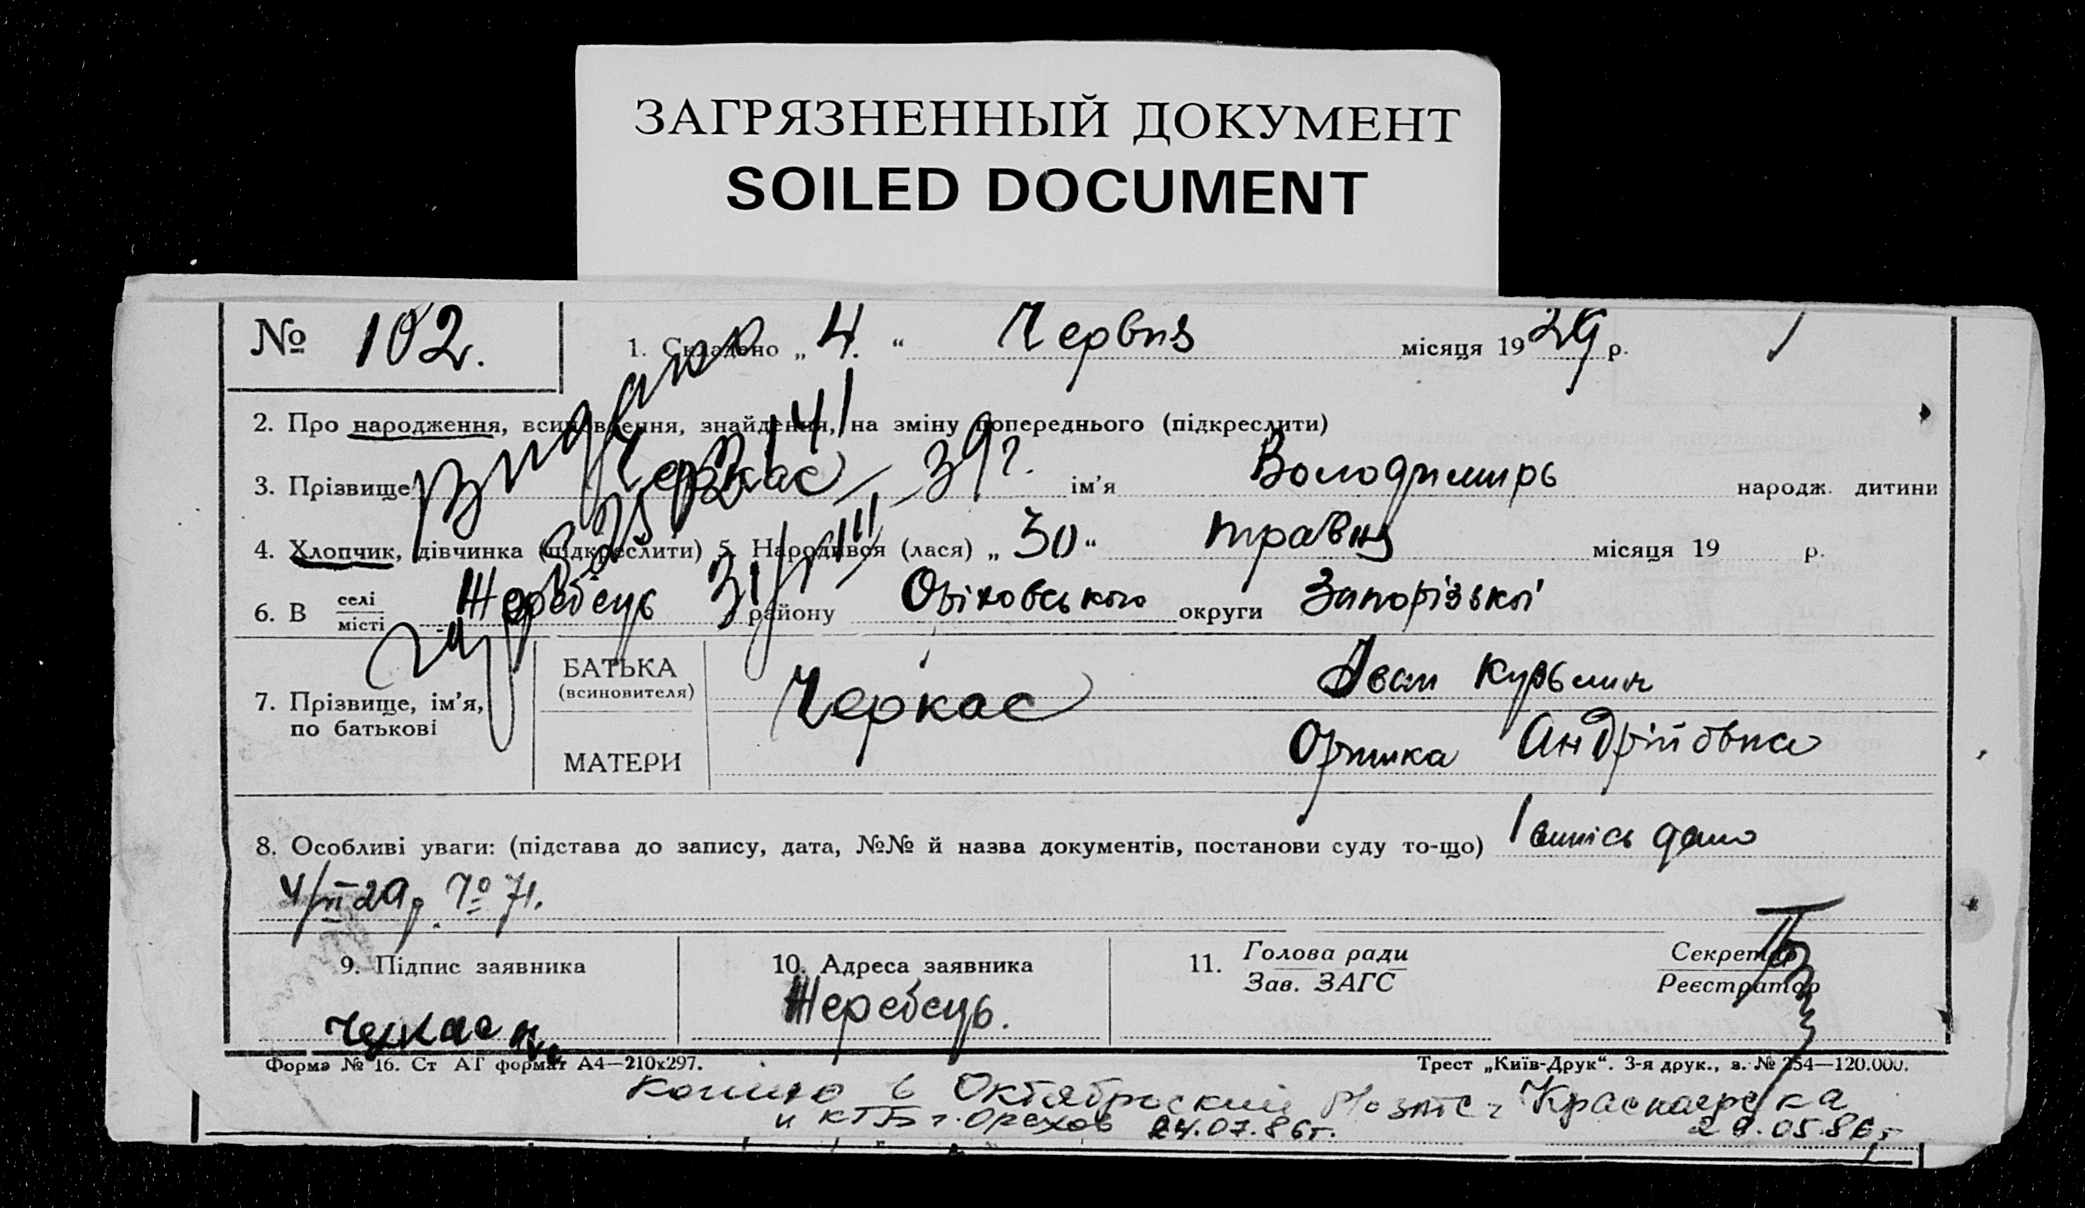 ЗАГРЯЗНЕННЫЙ ДОКУМЕНТ
SOILED DOCUMENT
№ 102. 1. Складено „ 4. “ Червня місяця 1929 р.
2. Про народження, всиновлення, знайдення, на зміну попереднього (підкреслити)
3. Прізвище Черкас ім'я Володимирь народж. дитини
39 г.
4. Хлопчик, дівчинка (підкреслити) 5. Народився (лася) „ 30 “ травня місяця 19 р.
6. В селі місті Жеребець району Оріховського округи Запорізької
7. Прізвище, ім'я, по батькові
БАТЬКА (всиновителя) Черкас Іван
МАТЕРИ Андрійовна
8. Особливі уваги: (підстава до запису, дата, №№ й назва документів, постанови суду то-що)
4/VI 29р. № 71.
9. Підпис заявника 10. Адреса заявника 11. Голова ради Зав. ЗАГС Секретар Реєстратор
Черкас Жеребець.
Форма № 16. Ст АГ формат А4—210х297. Трест „Київ-Друк“. 3-я друк., з. № 254—120.000.
в Октябрьский
г. Орехов 24.07.86г.